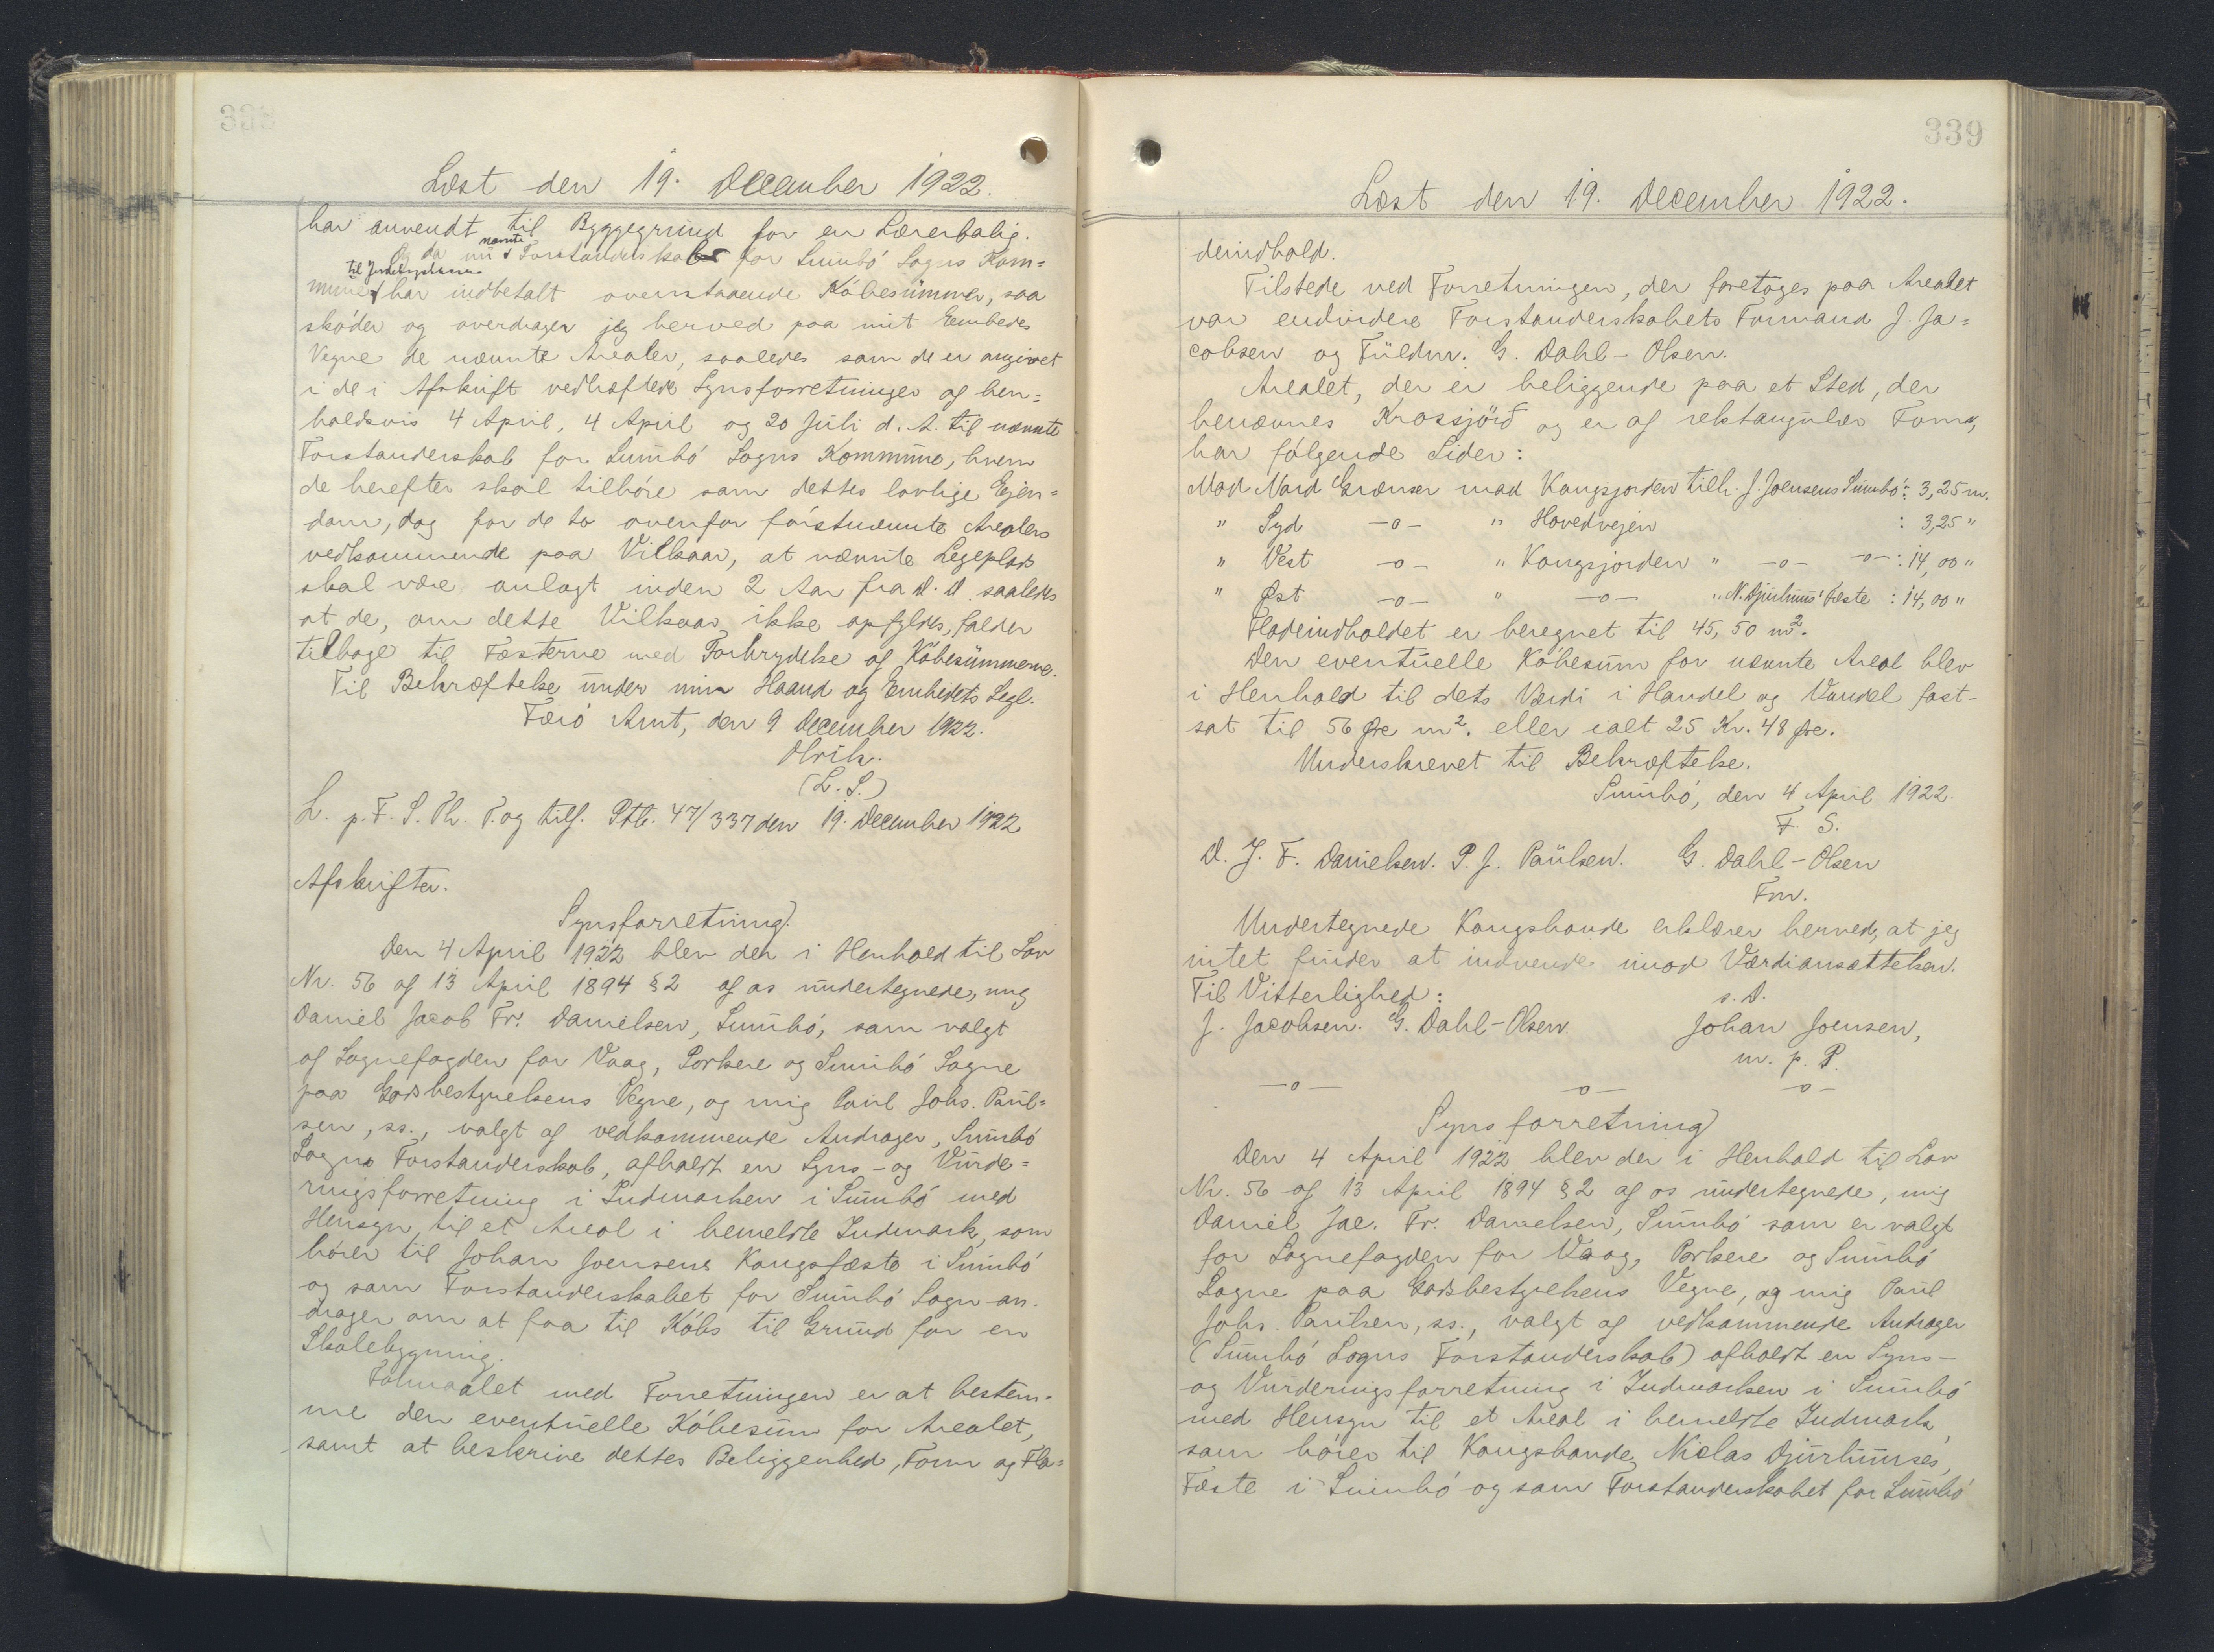 338
Læst den 19. December 1922.
har anvendt til Byggegrund for en Lærerbolig.
Og da nu nævnte Forstanderskab for Sumbö Sogns Kom=
mune til Jordebogskassen har indbetalt ovenstaaende Köbesummer, saa
sköder og overdrager jeg herved paa mit Embedes
Vegne de nævnte Arealer, saaledes som de er angivet
i de i Afskrift vedhæftede Synsforretninger af hen=
holdsvis 4 April, 4 April og 20 Juli d. A. til nævnte
Forstanderskab for Sumbö Sogns Kommune, hvem
de herefter skal tilhöre som dettes lovlige Ejen=
dom, dog for de to ovenfor förstnævnte Arealers
vedkommende paa Vilkaar, at nævnte Legeplads
skal være anlagt inden 2 Aar fra D. D. saaledes
at de, om dette Vilkaar ikke opfyldes, falder
tilbage til Fæsterne med Fortrydelse af Köbesummerne.
Til Bekræftelse under min Haand og Embedets Segl.
Færö Amt, den 9 December 1922.
Olrik.
(L. S.)
L. p. F. S. Th. P. og tilf. Ptb. 47/337 den 19. December 1922
Afskrifter.
Synsforretning.
Den 4 April 1922 blev der i Henhold til Lov
Nr. 56 af 13 April 1894 § 2 af os undertegnede, mig
Daniel Jacob Fr. Danielsen, Sumbö, som valgt
af Sognefogden for Vaag, Porkere og Sumbö Sogne
paa Godsbestyrelsens Vegne, og mig Poul Johs. Poul=
sen, ss., valgt af vedkommende Andrager, Sumbö
Sogns Forstanderskab, afholdt en Syns- og Vurde=
ringsforretning i Indmarken i Sumbö med
Hensyn til et Areal i bemeldte Indmark, som
hörer til Johan Joensens Kongsfæste i Sumbö
og som Forstanderskabet for Sumbö Sogn an-
drager om at faa til Köbs til Grund for en
Skolebygning.
Formaalet med Forretningen er at bestem-
me den eventuelle Köbesum for Arealet,
samt at beskrive dettes Beliggenhed, Form og Fla=
339
Læst den 19. December 1922.
deindhold.
Tilstede ved Forretningen, der foretoges paa Arealet
var endvidere Forstanderskabets Formand J. Ja=
cobsen og Fuldm. G. Dahl-Olsen.
Arealet, der er beliggende paa et Sted, der
benævnes Krossjörd og er af rektangulær Form,
har fölgende Sider:
Mod Nord Grænser mod Kongsjorden tilh. J. Joensens Sumbö: 3,25 m.
" Syd -o- " Hovedvejen : 3,25 "
" Vest -o- " Kongsjorden " -o- -o-: 14,00 "
" Øst -o- " -o- " N. Djurhuus' Fæste : 14,00 "
Fladeindholdet er beregnet til 45,50 m².
Den eventuelle Köbesum for nævnte Areal blev
i Henhold til dets Værdi i Handel og Vandel fast-
sat til 56 Øre m². eller ialt 25 Kr. 48 Øre.
Underskrevet til Bekræftelse.
Sumbö, den 4 April 1922.
F. S.
D. J. F. Danielsen. P. J. Paulsen. G. Dahl-Olsen
Fm.
Undertegnede Kongsbonde erklærer herved, at jeg
intet finder at indvende imod Værdiansættelsen.
Til Vitterlighed: s. D.
J. Jacobsen. G. Dahl-Olsen. Johan Joensen,
m. p. P.
-o- -o- -o-
Synsforretning
Den 4 April 1922 blev der i Henhold til Lov
Nr. 56 af 13 April 1894 § 2 af os undertegnede, mig
Daniel Jac. Fr. Danielsen, Sumbö som er valgt
for Sognefogden for Vaag, Porkere og Sumbö
Sogne paa Godsbestyrelsens Vegne, og mig Paul
Johs. Paulsen, ss., valgt af vedkommende Andrager
(Sumbö Sogns Forstanderskab) afholdt en Syns-
og Vurderingsforretning i Indmarken i Sumbö
med Hensyn til et Areal i bemeldte Indmark,
som hörer til Kongsbonde Niclas Djurhuuses,
Fæste i Sumbö og som Forstanderskabet for Sumbö